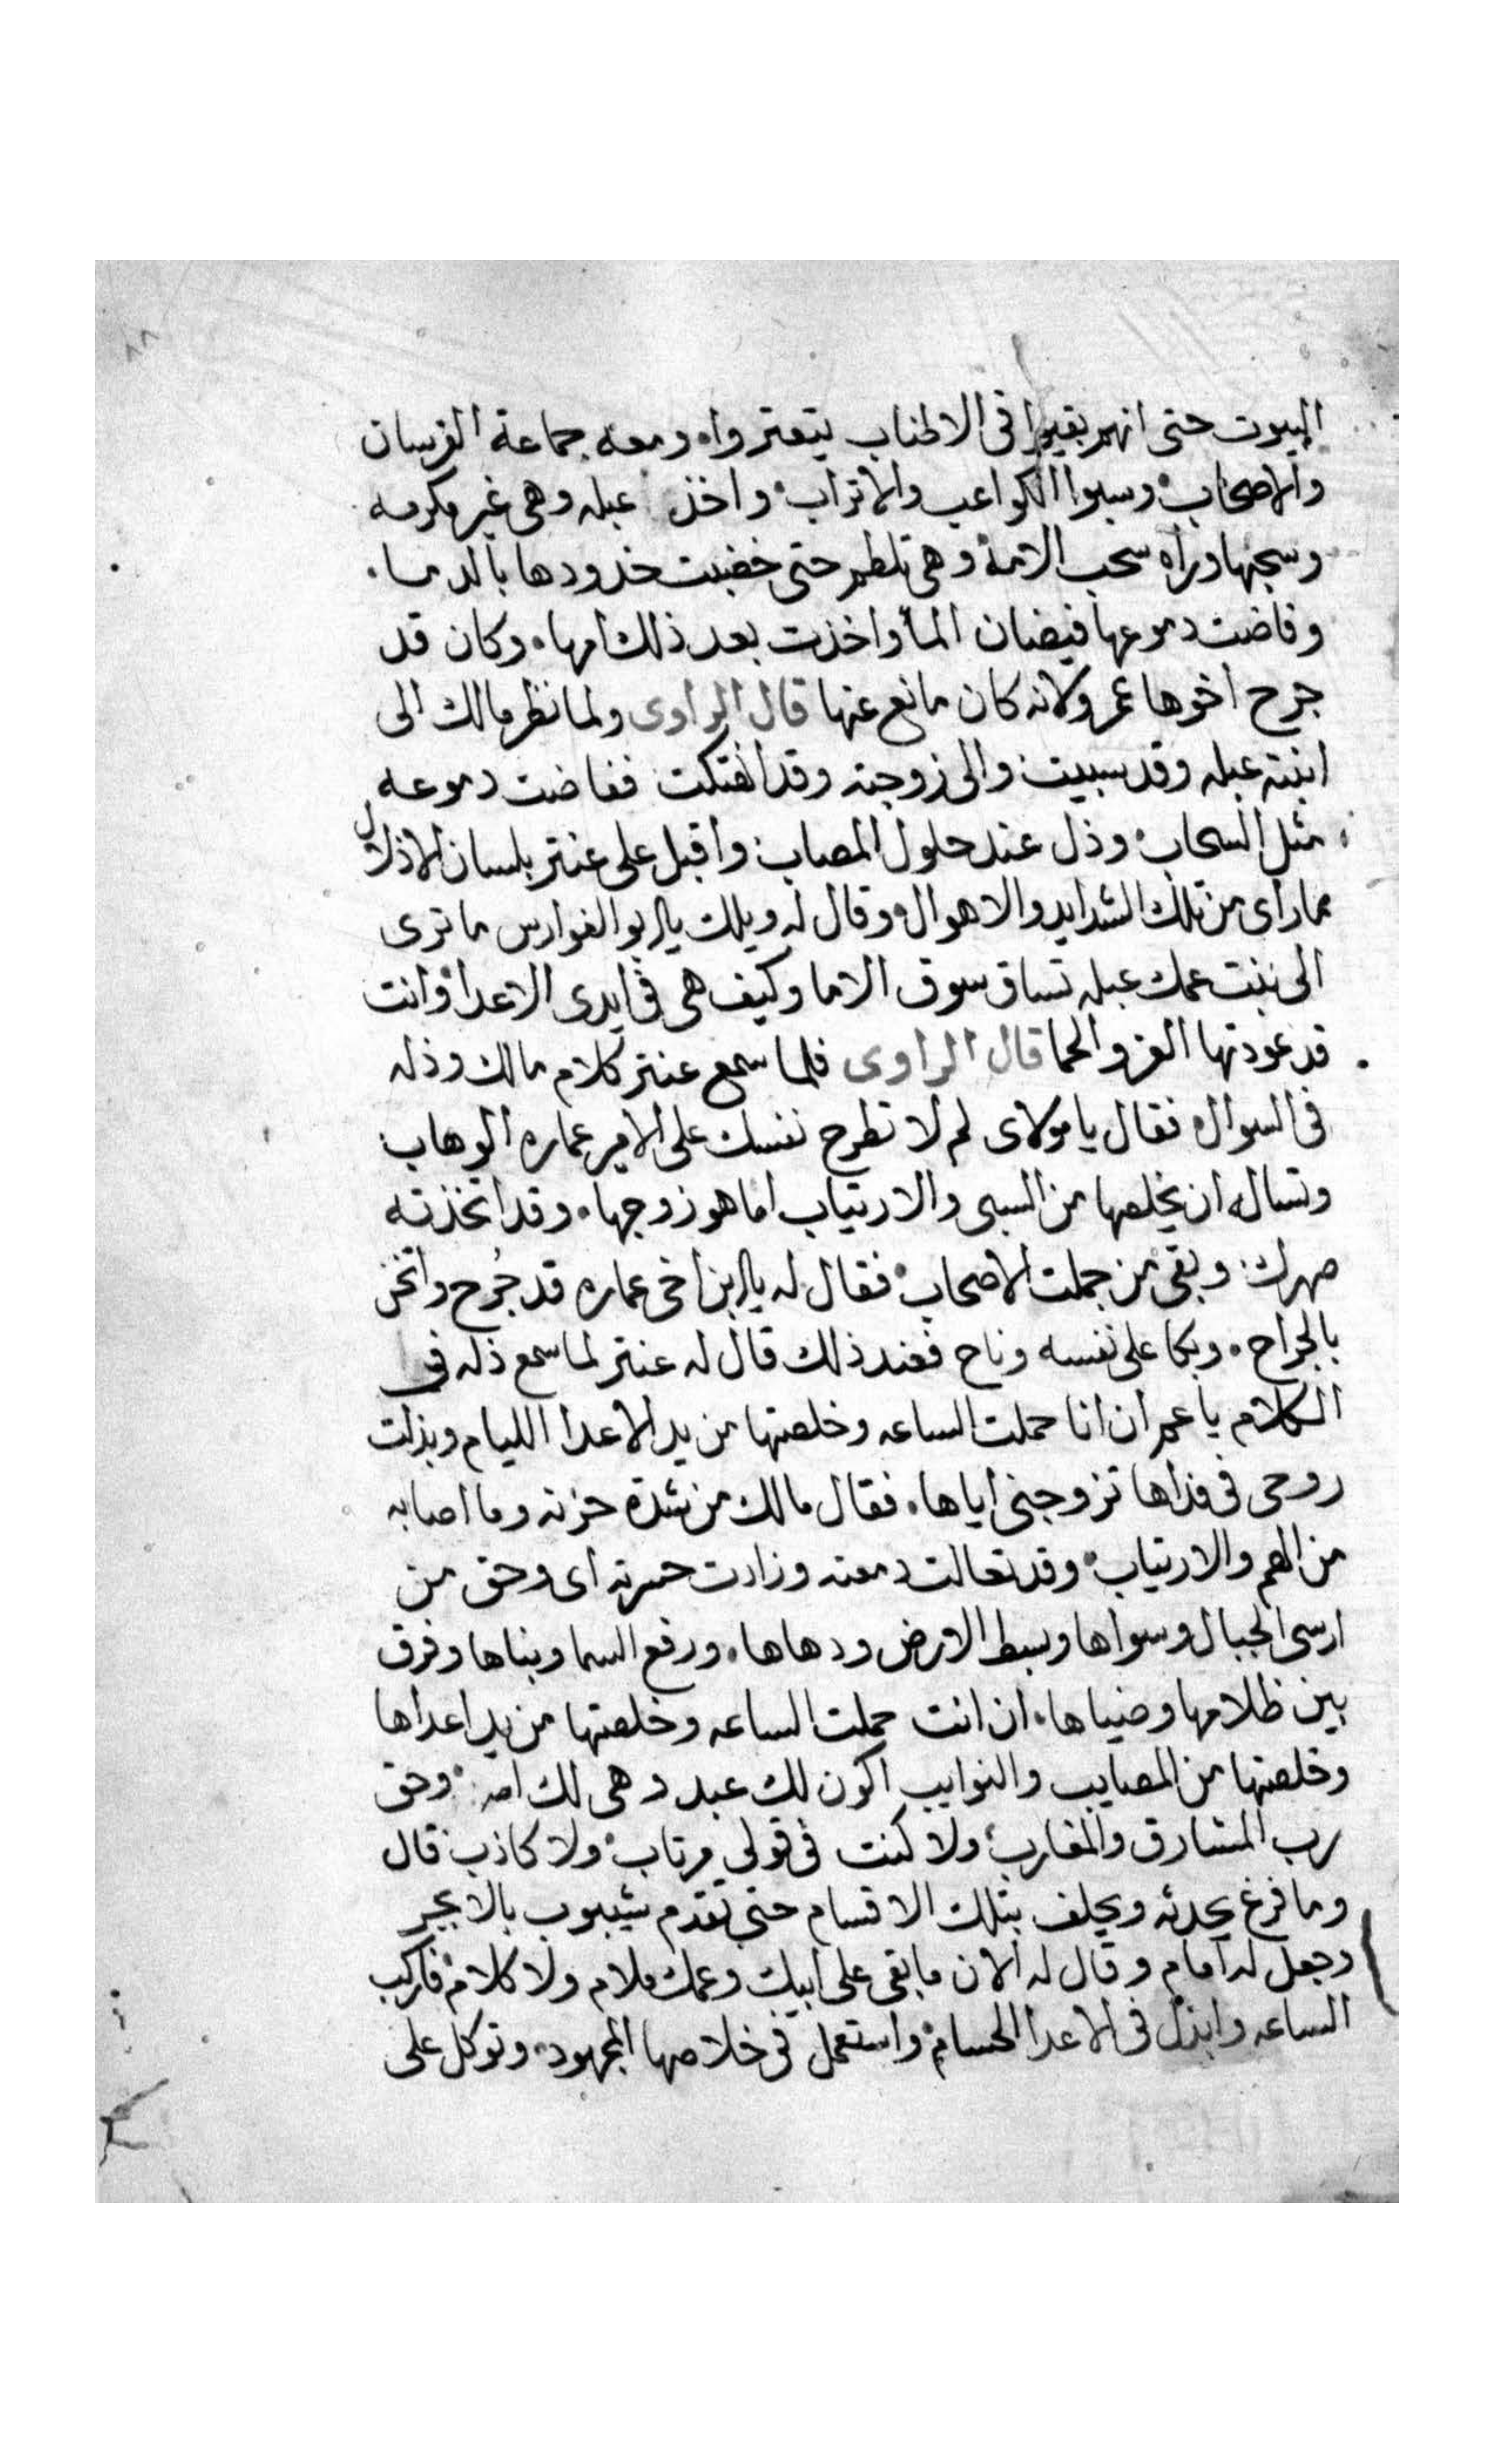 ٨٨
البيوت حتى انهم بقيوا فى الاطناب يتعتروا ٠ ومعه جماعة الفرسان
والاصحاب ٠ وسبوا الكواعب والاتراب ٠ واخذ عبله وهى غير مكرمه
وسحبها وراه سحب الامة وهى تلطم حتى خضبت خدودها بالدما ٠
وفاضت دموعها فيضان الما واخذت بعد ذلك امها ٠ وكان قد
جرح اخوها عمرو لانه كان مانع عنها قال الراوى ولما نظر مالك الى
ابنته عبله وقد سبيت والى زوجته وقد انهتكت ففاضت دموعه
مثل السحاب ٠ وذل عند حلول المصاب واقبل على عنتر بلسان الاذلال
مما راى من تلك الشدايد والاهوال ٠ وقال له ويلك يا ابو الفوارس ما ترى
الى بنت عمك عبله تساق سوق الاما وكيف هى فى ايدى الاعدا وانت
قد عودتها العز والحما قال الراوى فلما سمع عنتر كلام مالك وذله
فى السوال فقال يا مولاى لم لا تطرح نفسك على الامير عماره الوهاب
وتساله ان يخلصها من السبى والارتياب اما هو زوجها ٠ وقد اتخذته
صهرك وبقى من جملت الاصحاب ٠ فقال له يا ابن اخى عماره قد جُرح واثخن
بالجراح ٠ وبكا على نفسه وناح فعند ذلك قال له عنتر لما سمع ذله فى
الكلام يا عم ان انا حملت الساعه وخلصتها من يد الاعدا الليام وبذلت
روحى فى فداها تزوجنى اياها ٠ فقال مالك من شدة حزنه وما اصابه
من الهم والارتياب ٠ وقد تعالت دمعته وزادت حسرته اى وحق من
ارسى الجبال وسواها وبسط الارض ودحاها ٠ ورفع السما وبناها وفرق
بين ظلامها وضياها ٠ ان انت حملت الساعه وخلصتها من يد اعداها
وخلصتها من المصايب والنوايب اكون لك عبد وهى لك امه ٠ وحق
رب المشارق والمغارب ٠ ولا كنت فى قولى مرتاب ٠ ولا كاذب قال
وما فرغ يحدثه ويحلف بتلك الاقسام حتى تقدم شيبوب بالابجر
وجعل له امام وقال له الان ما بقى على ابيك وعمك ملام ولا كلام ٠ فاركب
الساعه وابذل فى الاعدا الحسام ٠ واستعمل فى خلاصها المجهود ٠ وتوكل على